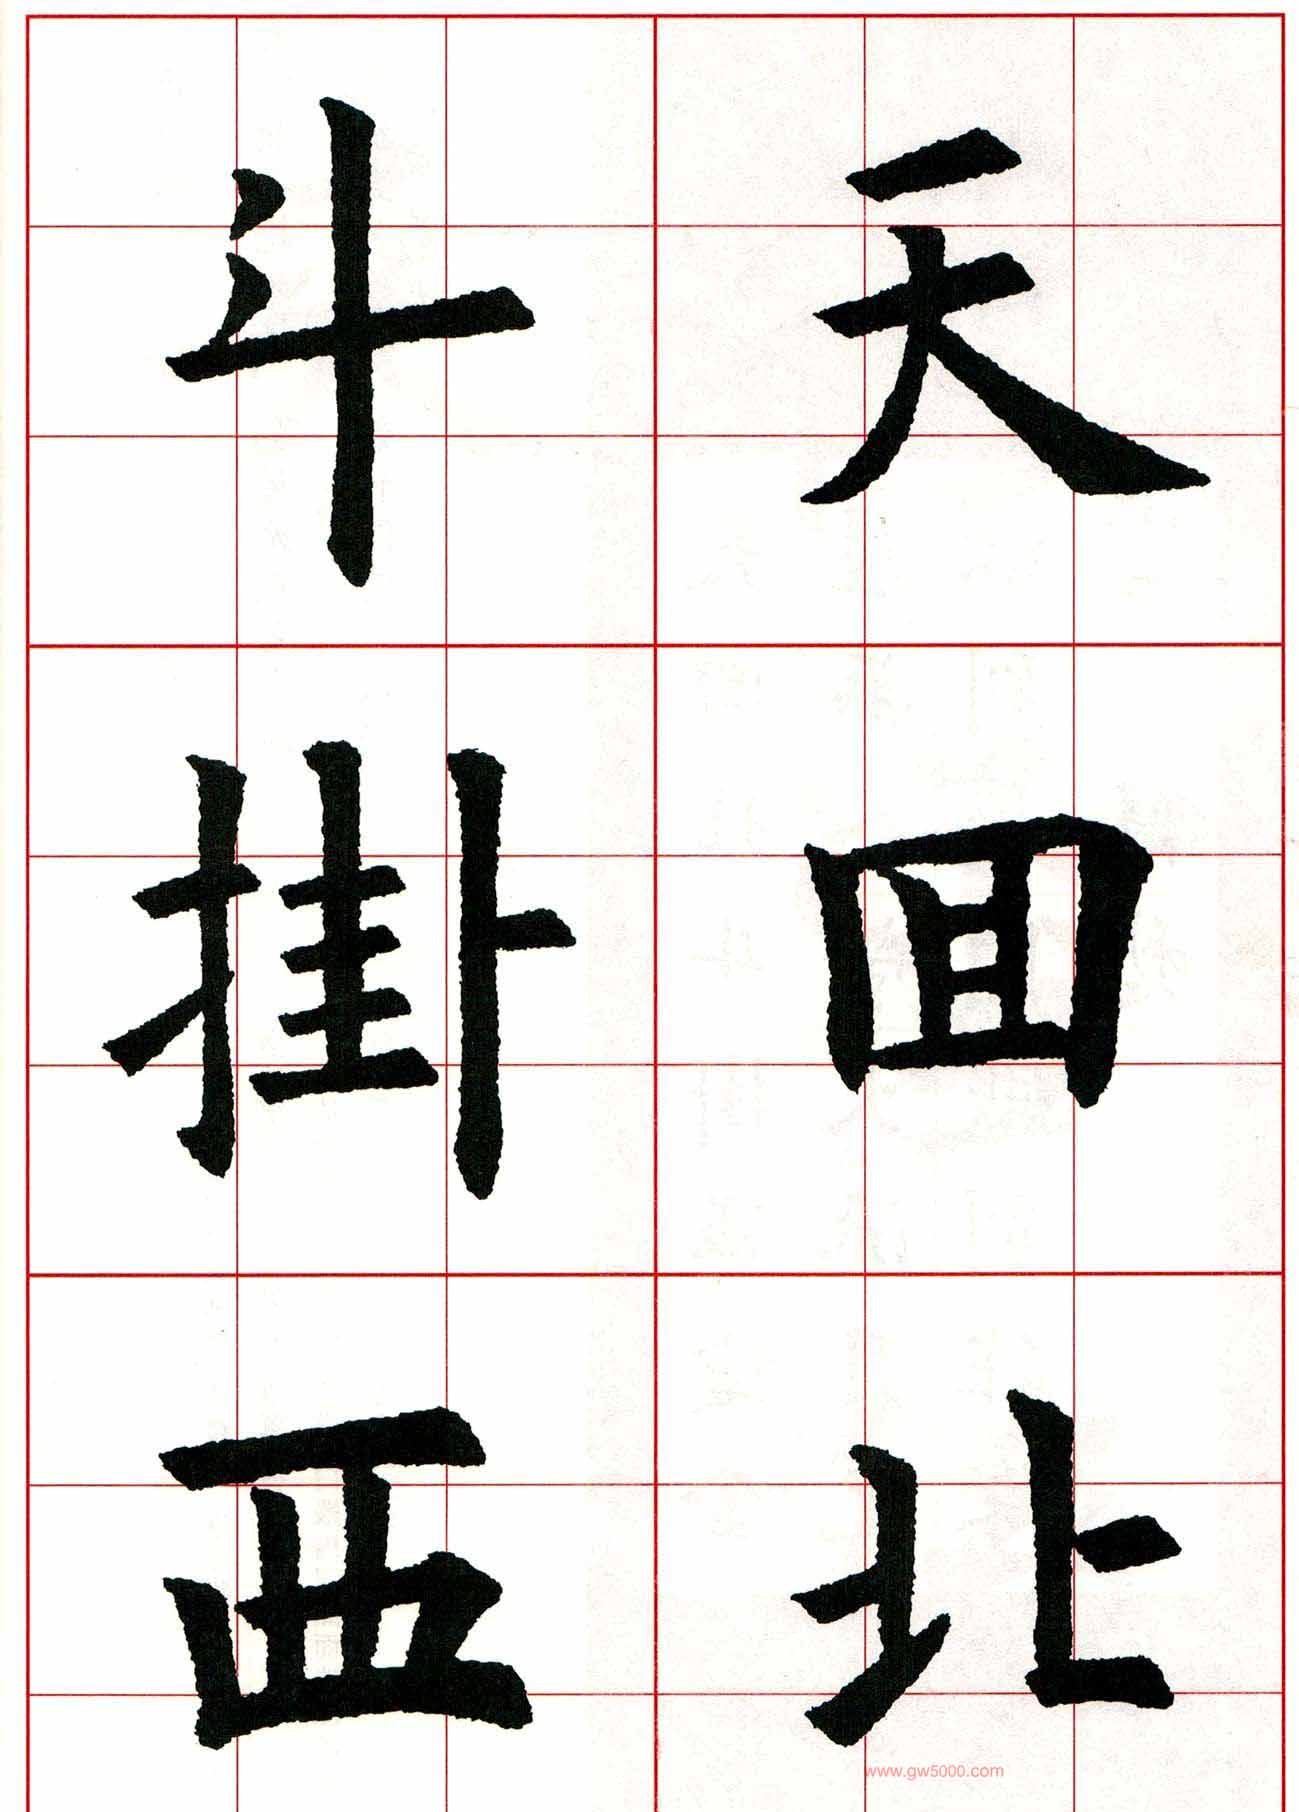 天囬北
斗掛西
www.gw5000.com